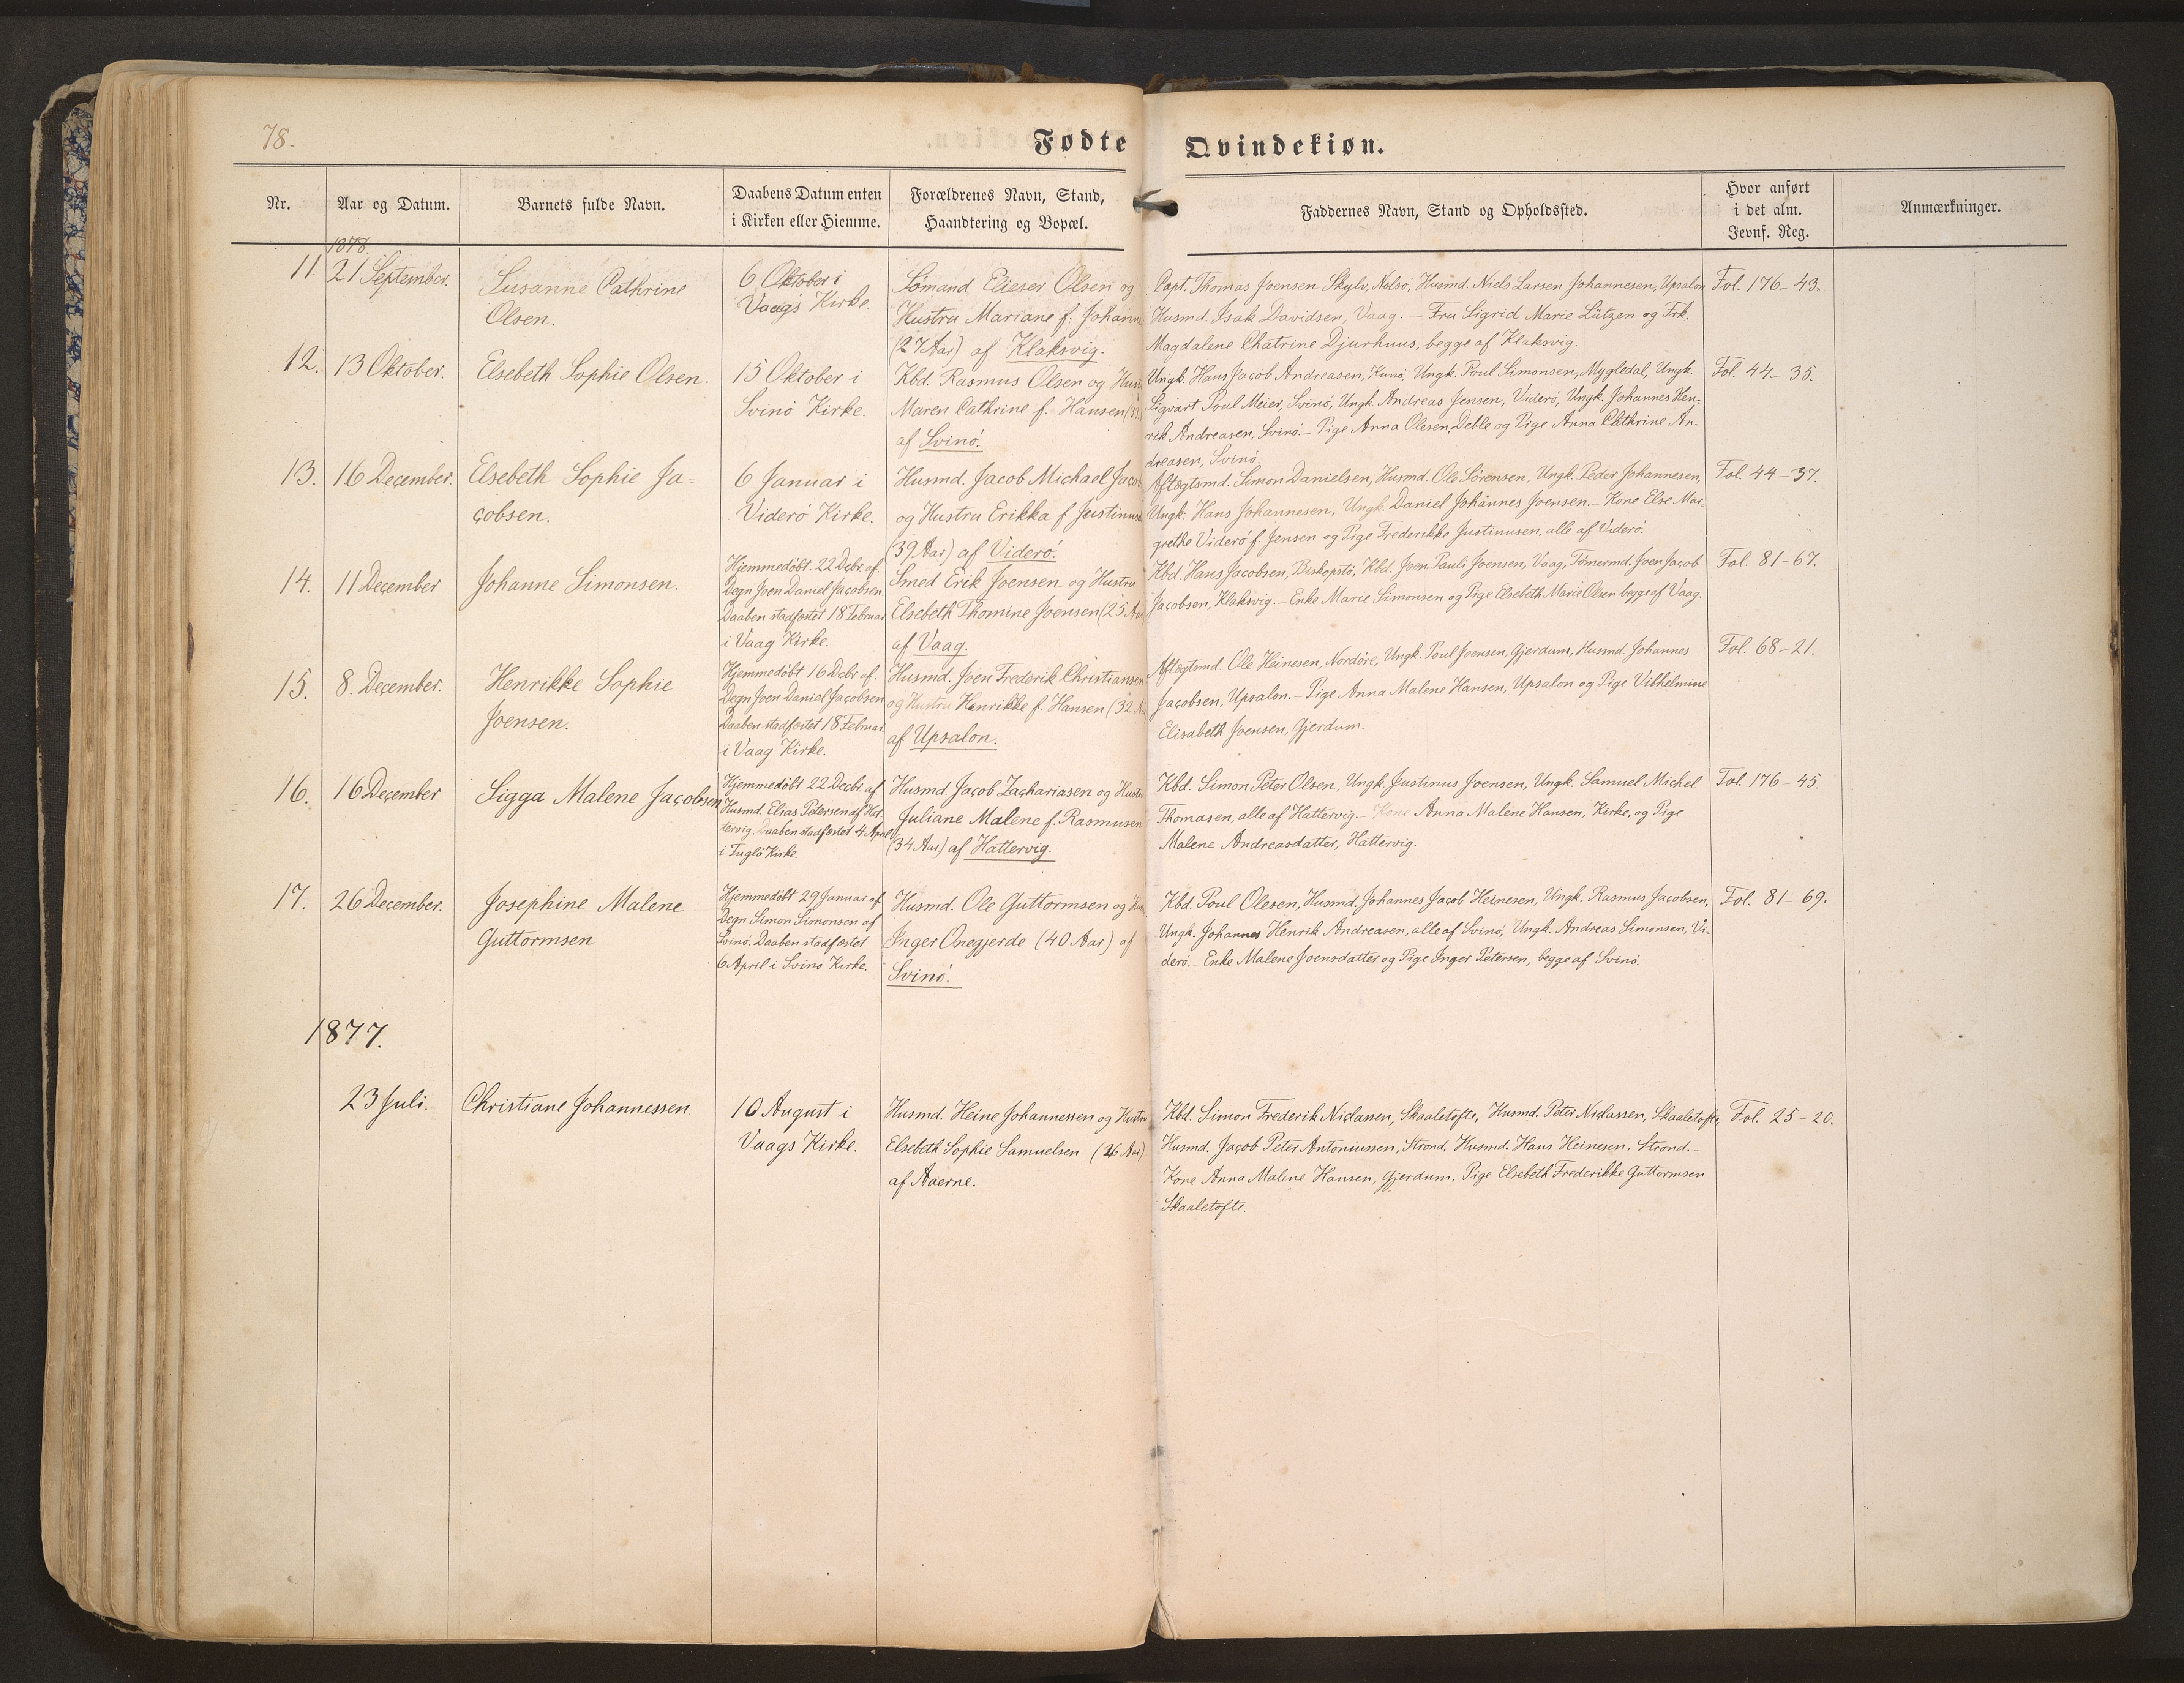 78.
Fødte Qvindekiøn.
Nr.
Aar og Datum.
Barnets fulde Navn.
Daabens Datum enten
i Kirken eller Hiemme.
Forældrenes Navn, Stand,
Haandtering og Bopæl.
Faddernes Navn, Stand og Opholdssted.
Hvor anført
i det alm.
Jevnf. Reg.
Anmærkninger.
1878.
11.
21 September.
Susanne Cathrine
Olsen.
6 Oktober i
Vaags Kirke.
Sømand Elieser Olsen og
Hustru Mariane f. Johann
(27 Aar) af Klaksvig.
Capt. Thomas Joensen Skylv, Nolsø, Husmd. Niels Larsen Johannesen, Upsalon
Husmd. Isak Davidsen, Vaag. – Fru Sigrid Marie Lützen og Frk.
Magdalene Chatrine Djurhuus, begge af Klaksvig.
Fol. 176 – 43.
12.
13 Oktober.
Elsebeth Sophie Olsen.
15 Oktober i
Svinø Kirke.
Kbd. Rasmus Olsen og Hust
Maren Cathrine f. Hansen (
af Svinø.
Ungk. Hans Jacob Andreasen, Kunø, Ungk. Poul Simonsen, Mygledal, Ungk.
Sigvart Poul Meier, Svinø, Ungk. Andreas Jensen, Viderø, Ungk. Johannes Hen-
rik Andreasen, Svinø. – Pige Anna Olesen, Deble og Pige Anna Cathrine An-
dreasen, Svinø.
Fol. 44 – 35.
13.
16 December.
Elsebeth Sophie Ja-
cobsen.
6 Januar i
Viderø Kirke.
Husmd. Jacob Michael Jacob
og Hustru Erikka f. Justinus
(39 Aar) af Viderø.
Aflægtsmd. Simon Danielsen, Husmd. Ole Sörensen, Ungk. Peder Johannesen,
Ungk. Hans Johannesen, Ungk. Daniel Johannes Joensen. – Kone Else Mar-
grethe Viderø f. Jensen og Pige Frederikke Justinusen, alle af Viderø.
Fol. 44 – 37.
14.
11 December
Johanne Simonsen.
Hjemmedøbt. 22 Dcbr. af
Degn Joen Daniel Jacobsen.
Daaben stadfæstet 18 Februar
i Vaag Kirke.
Smed Erik Joensen og Hustru
Elsebeth Thomine Joensen (25 Aar
af Vaag.
Kbd. Hans Jacobsen, Biskopstø, Kbd. Joen Pauli Joensen, Vaag, Tømermd. Joen Jacob
Jacobsen, Klaksvig. – Enke Marie Simonsen og Pige Elsebeth Marie Olsen begge af Vaag.
Fol. 81 – 67.
15.
8. December.
Henrikke Sophie
Joensen.
Hjemmedøbt 16 Dcbr. af.
Degn Joen Daniel Jacobsen
Daaben stadfæstet 18 Februar
i Vaag Kirke.
Husmd. Joen Frederik Christiansen
og Hustru Henrikke f. Hansen (32 Aa
af Upsalon.
Aflægtsmd. Ole Heinesen, Nordøre, Ungk. Poul Joensen, Gjerdum, Husmd. Johannes
Jacobsen, Upsalon. – Pige Anna Malene Hansen, Upsalon og Pige Vilhelmine
Elisabeth Joensen, Gjerdum.
Fol. 68 – 21.
16.
16 December
Sigga Malene Jacobsen
Hjemmedøbt 22 Decbr. af
Husmd. Elias Petersen af Hat-
tervig. Daaben stadfæstet 4 April
i Fuglø Kirke.
Husmd. Jacob Zachariasen og Hustru
Juliane Malene f. Rasmusen
(34 Aar) af Hattervig.
Kbd. Simon Peter Olsen, Ungk. Justinus Joensen, Ungk. Samuel Michel
Thomasen, alle af Hattervig. – Kone Anna Malene Hansen, Kirke, og Pige
Malene Andreasdatter, Hattervig.
Fol. 176 – 45.
17.
26 December.
Josephine Malene
Guttormsen
Hjemmedøbt 29 Januar af
Degn Simon Simonsen af
Svinø. Daaben stadfæstet
6 April i Svinø Kirke.
Husmd. Ole Guttormsen og Hu
Inger Onegjerde (40 Aar) af
Svinø.
Kbd. Poul Olesen, Husmd. Johannes Jacob Heinesen, Ungk. Rasmus Jacobsen,
Ungk. Johannes Henrik Andreasen, alle af Svinø, Ungk. Andreas Simonsen, Vi-
derø. – Enke Malene Joensdatter og Pige Inger Petersen, begge af Svinø.
Fol. 81 – 69.
1877.
23 Juli.
Christiane Johannessen
10 August i
Vaags Kirke.
Husmd. Heine Johannessen og Hustru
Elsebeth Sophie Samuelsen (26 Aar)
af Aaerne.
Kbd. Simon Frederik Niclassen, Skaaletofte, Husmd. Peter Niclassen, Skaaletofte,
Husmd. Jacob Peter Antoniussen, Strond, Husmd. Hans Heinesen, Strond. –
Kone Anna Malene Hansen, Gjerdum, Pige Elsebeth Frederikke Guttormsen
Skaaletofte.
Fol. 25 – 20.